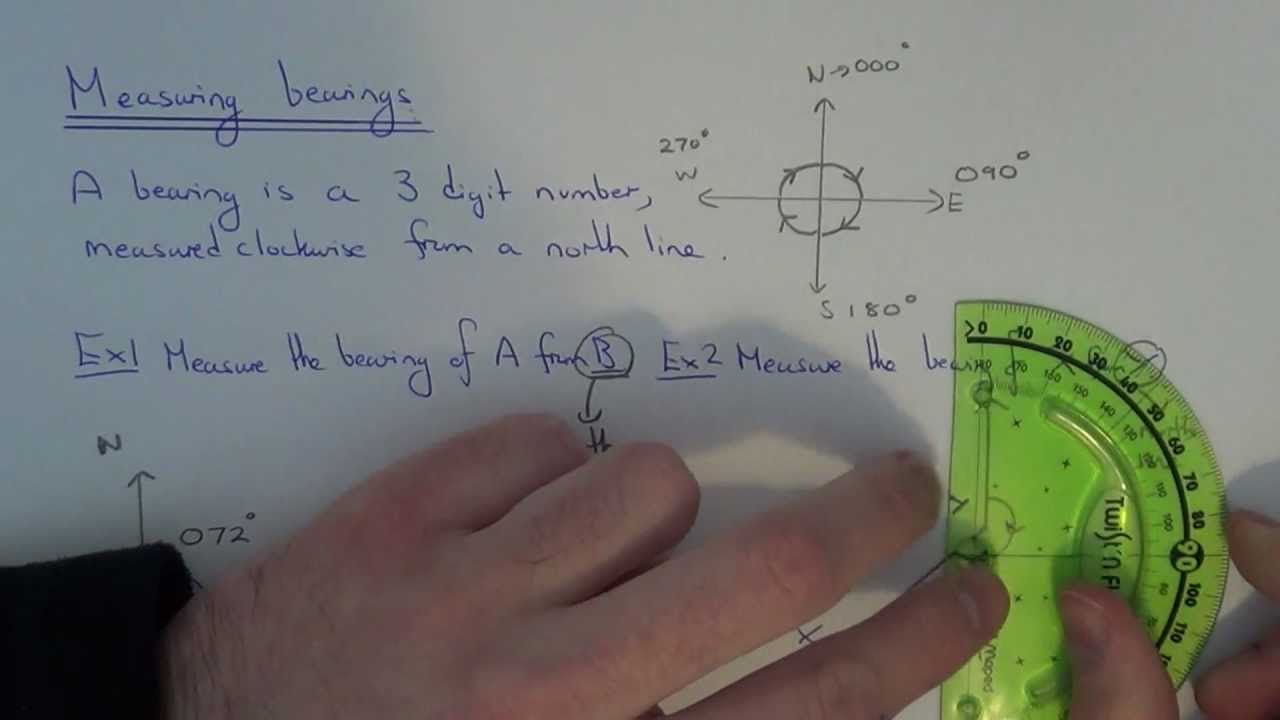 Measuring bearings.
A bearing is a 3 digit number,
measured clockwise from a north line.
N→000°
270°
W
090°
E
S 180°
Ex1 Measure the bearing of A from B
Ex2 Measure the bearing
N
072°
0 10 20 30 40 50 60 70 80 90 100 110
160 150 140 130 110 100
Twist'n Fl
Maped